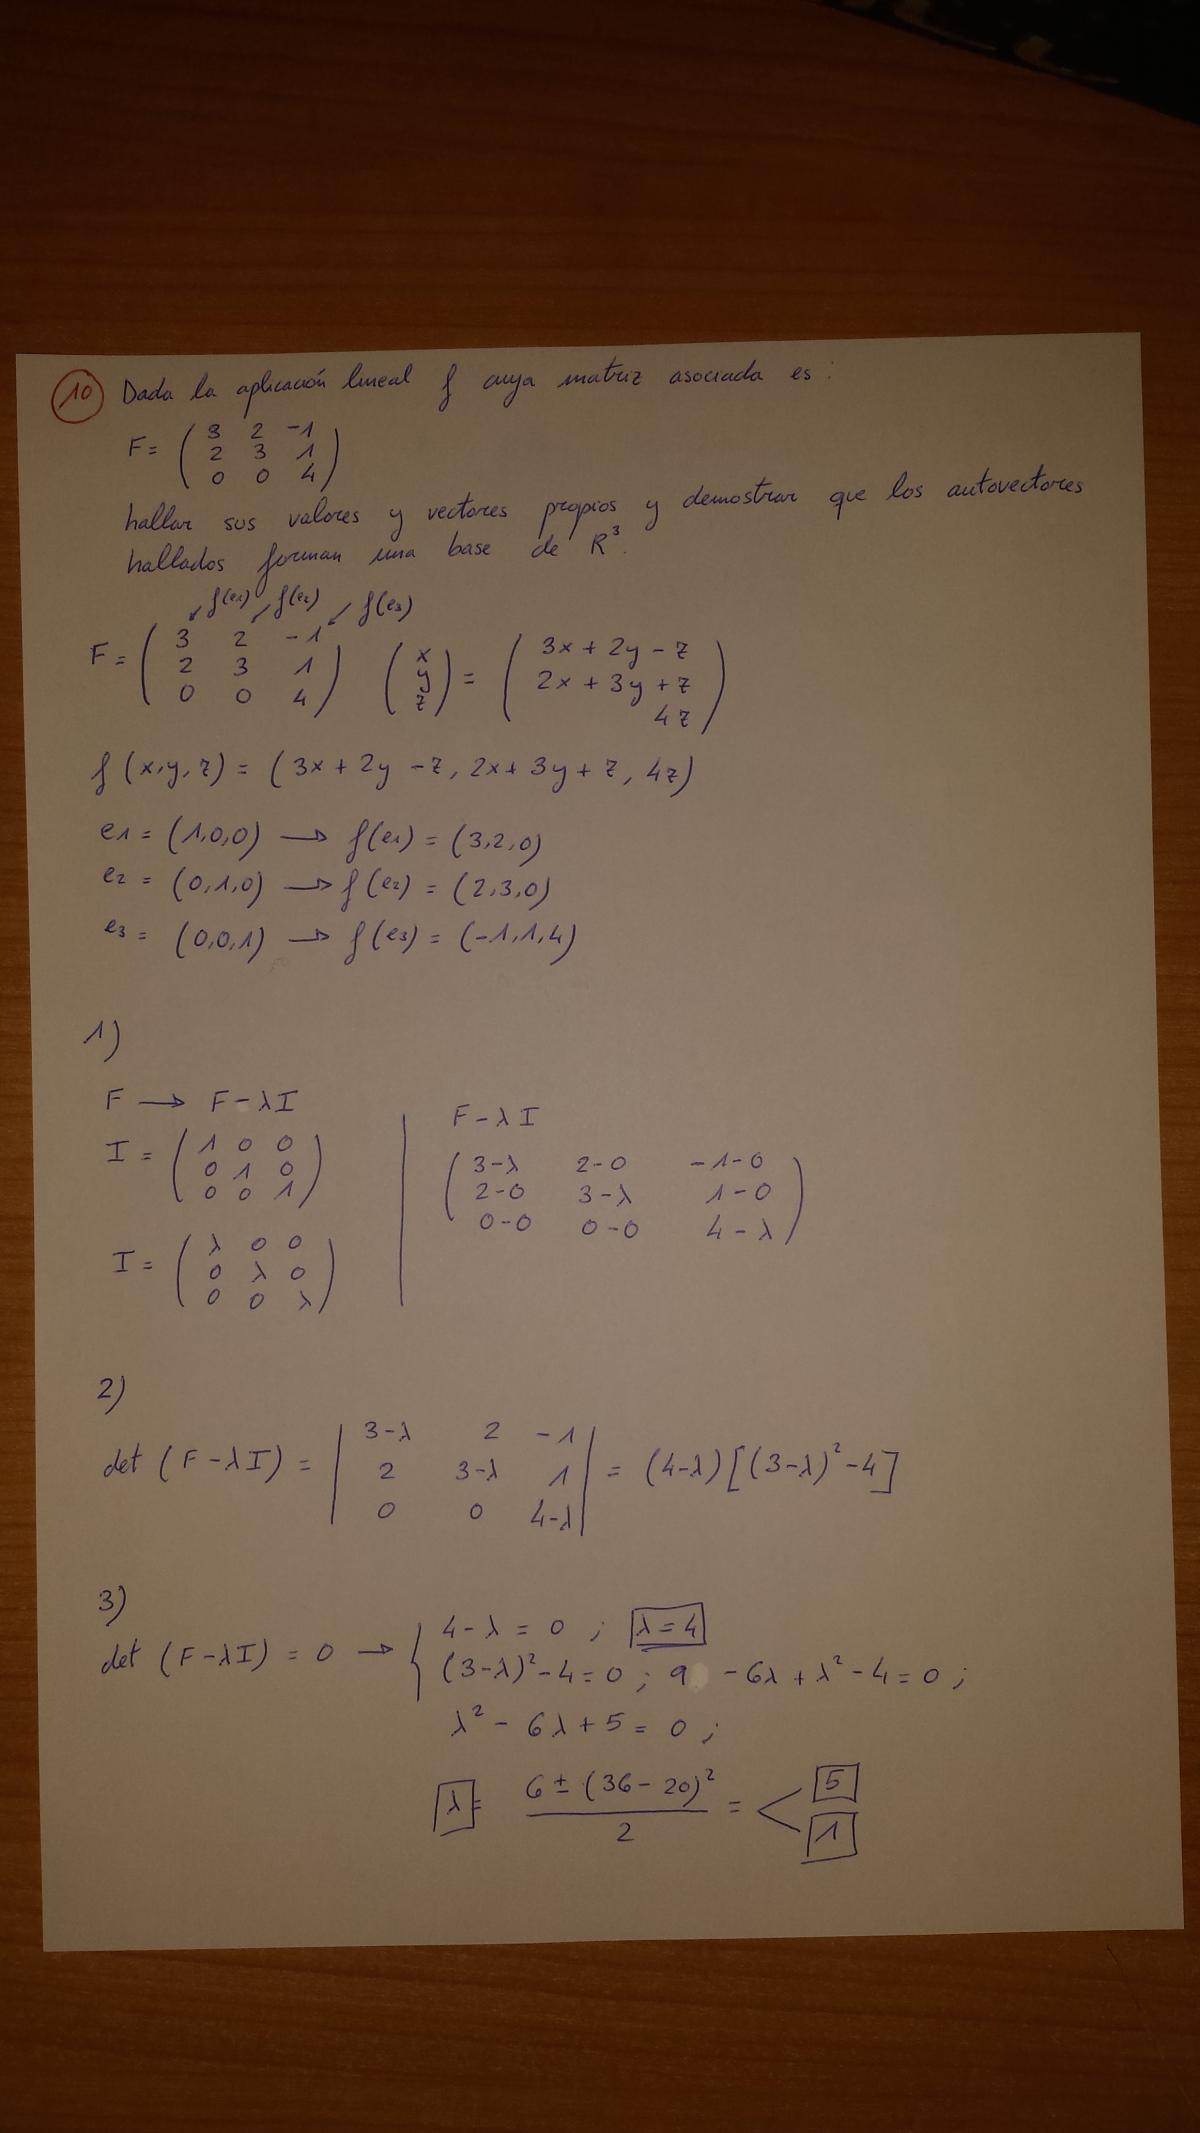 10 Dada la aplicación lineal f cuya matriz asociada es:
F = ( 3 2 -1
2 3 1
0 0 4 )
hallar sus valores y vectores propios y demostrar que los autovectores
hallados forman una base de R³.
f(e1) f(e2) f(e3)
F = ( 3 2 -1 ) ( x ) = ( 3x + 2y - z )
( 2 3 1 ) ( y ) ( 2x + 3y + z )
( 0 0 4 ) ( z ) ( 4z )
f (x,y,z) = (3x + 2y - z, 2x + 3y + z, 4z)
e1 = (1,0,0) → f(e1) = (3,2,0)
e2 = (0,1,0) → f(e2) = (2,3,0)
e3 = (0,0,1) → f(e3) = (-1,1,4)
1)
F → F - λI
I = ( 1 0 0
0 1 0
0 0 1 )
I = ( λ 0 0
0 λ 0
0 0 λ )
F - λI
( 3-λ 2-0 -1-0
2-0 3-λ 1-0
0-0 0-0 4-λ )
2)
det (F - λI) = | 3-λ 2 -1 |
| 2 3-λ 1 | = (4-λ) [(3-λ)² - 4]
| 0 0 4-λ |
3)
det (F - λI) = 0 → { 4 - λ = 0 ; λ = 4
(3-λ)² - 4 = 0 ; 9 - 6λ + λ² - 4 = 0 ;
λ² - 6λ + 5 = 0 ;
λ = 6 ± (36 - 20)² / 2 = < 5
1